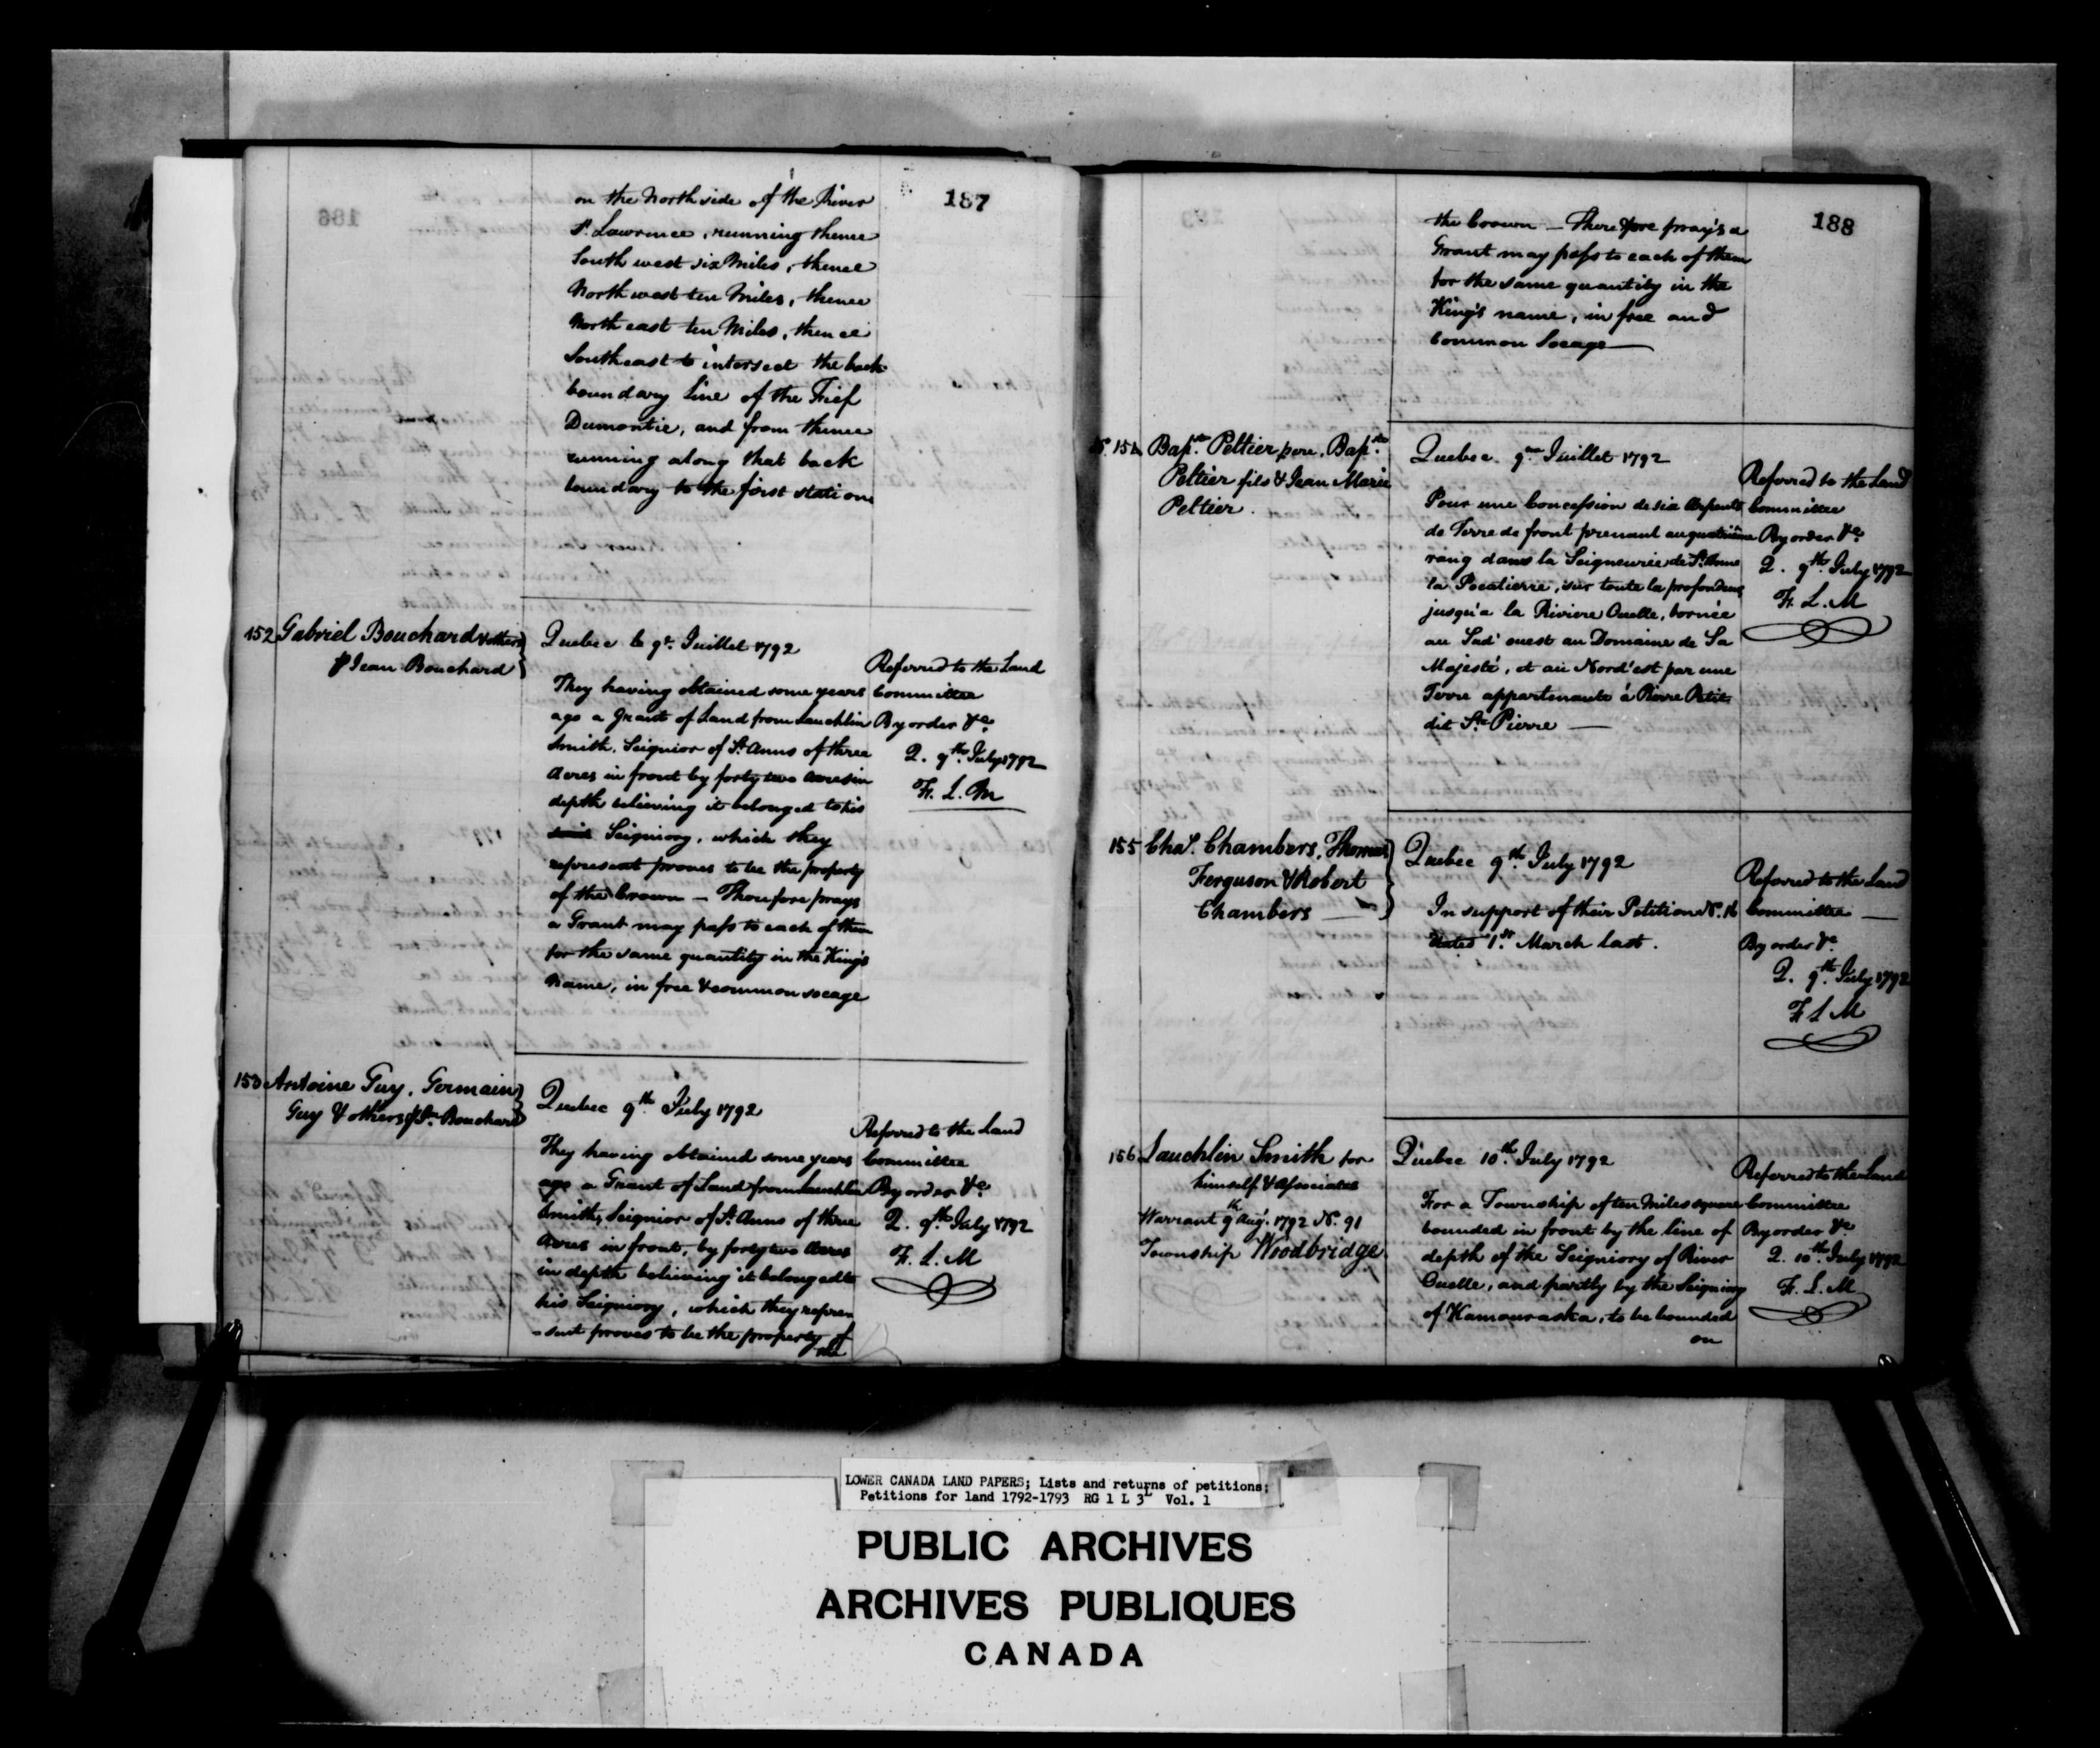 187
on the North side of the River
St. Lawrence, running thence
South west six Miles, thence
North west ten Miles, thence
North east ten Miles, thence
South east to intersect the back
boundary Line of the Fief
Dumontie, and from thence
running along that back
boundary to the first station
152 Gabriel Bouchard & others
⅌ Jean Bouchard
Quebec le 9e Juillet 1792
They having obtained some years
ago a Grant of Land from Lauchlin
Smith, Seignior of St. Anns of three
Acres in front by forty two Acres in
depth believing it belonged to his
said Seigniory, which they
represent proves to be the property
of the Crown — Therefore prays
a Grant may pass to each of them
for the same quantity in the King's
Name, in free & common socage
Referred to the Land
Committee
By order &c.
Q. 9th July 1792
F. L. M
153 Antoine Guy, Germain
Guy & others ⅌ Jn. Bouchard
Quebec 9th July 1792
They having obtained some years
ago a Grant of Land from Lauchlin
Smith, Seignior of St. Anns of three
Acres in front, by forty two Acres
in depth believing it belonged to
his Seigniory, which they repre
-sent proves to be the property of
the
Referred to the Land
Committee
By order &c.
Q. 9th July 1792
F. L. M
188
the Crown — Therefore pray's a
Grant may pass to each of them
for the same quantity in the
King's name, in free and
Common Socage —
154 Bapte. Peltier pere, Bapte.
Peltier fils & Jean Marie
Peltier.
Quebec 9me Juillet 1792
Pour une Concession de six Arpents
de Terre de front prenant au quatriême
rang dans la Seigneurie de St. Anne
la Pocatierre, sur toute la profondeur
jusqu'a la Riviere Ouelle, bornée
au Sud'ouest au Domaine de Sa
Majesté, et au Nord'est par une
Terre appartenante à Pierre Petit
dit St. Pierre —
Referred to the Land
Committee
By order &c.
Q. 9th July 1792
F. L. M
155 Chas. Chambers, Thomas
Ferguson & Robert
Chambers —
Quebec 9th July 1792
In support of their Petition No. 16
dated 1st March last.
Referred to the Land
Committee —
By order &c
Q. 9th July 1792
F L M
156 Lauchlin Smith for
himself & Associates
Warrant 9th Augt. 1792 No. 91
Township Woodbridge
Quebec 10th July 1792
For a Township of ten Miles square
bounded in front by the line of
depth of the Seigniory of River
Ouelle, and partly by the Seigniory
of Kamouraska, to be bounded
on
Referred to the Land
Committee
By order &c
Q. 10th July 1792
F. L. M
LOWER CANADA LAND PAPERS; Lists and returns of petitions;
Petitions for land 1792-1793 RG 1 L 3L Vol. 1
PUBLIC ARCHIVES
ARCHIVES PUBLIQUES
CANADA